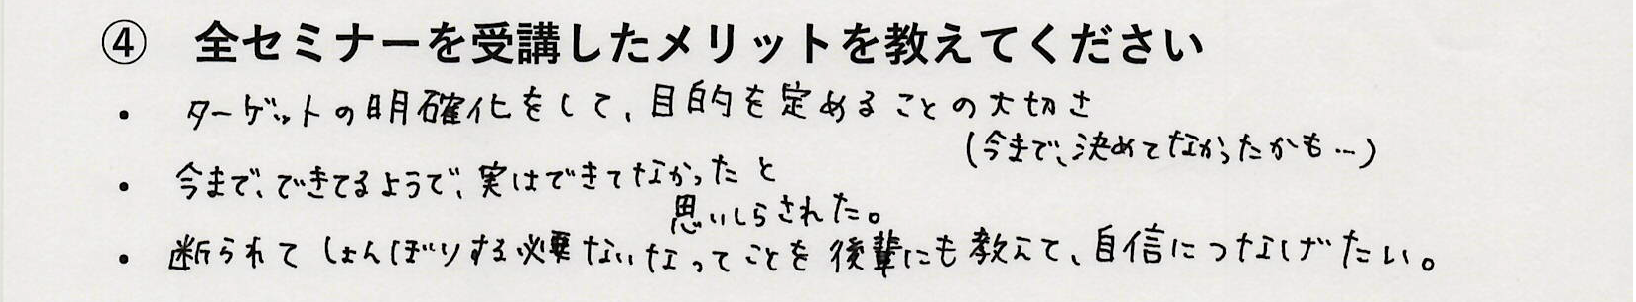 ④ 全セミナーを受講したメリットを教えてください
・ ターゲットの明確化をして、目的を定めることの大切さ
(今まで、決めてなかったかも…)
・ 今まで、できてるようで、実はできてなかったと
思いしらされた。
・ 断られてしょんぼりする必要ないなってことを後輩にも教えて、自信につなげたい。